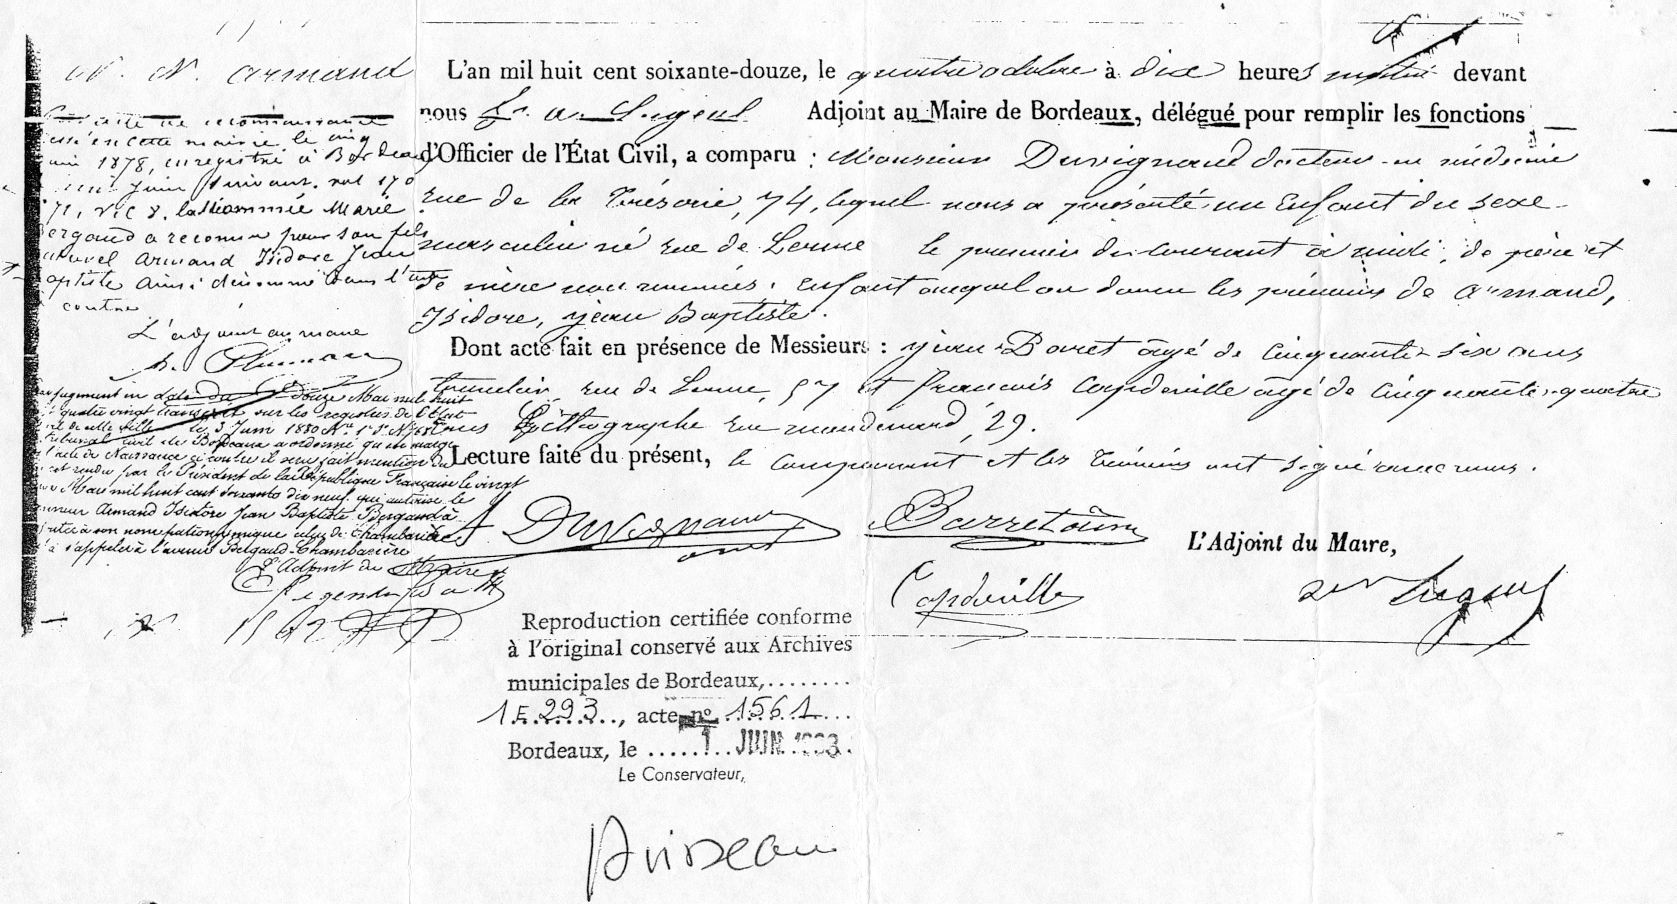 N. N. Armand
acte de reconnaissance
en cette mairie, le cinq
1878, enregistré à Bordeaux
Juin suivant. vol 170
la nommée Marie
Bergaud a reconnu pour son fils
naturel Armand Isidore Jean
Baptiste ainsi dénommé dans l'acte
contre
L'adjoint au maire
jugement en date du douze Mai mil huit
quatre vingt transcrit sur les registres de l'Etat
de cette ville le 3 Juin 1880
Tribunal civil de Bordeaux a ordonné qu'en marge
l'acte de Naissance ci contre il sera fait mention du
rendu par le Président de la République Française le vingt
Mai mil huit cent soixante dix neuf qui autorise le
Armand Isidore Jean Baptiste Bergaud à
à son nom patronymique celui de Chambarière
à s'appeler à l'avenir Bergaud-Chambarière
L'Adjoint du Maire
L'an mil huit cent soixante-douze, le quatre octobre à dix heures matin devant
nous Adjoint au Maire de Bordeaux, délégué pour remplir les fonctions
d'Officier de l'État Civil, a comparu : Monsieur Duvignaud docteur en médecine
rue de la Trésorie, 74, lequel nous a présenté un Enfant du sexe
masculin né rue de Lerme le premier du courant à midi, de père et
de mère non nommés. Enfant auquel on donne les prénoms de Armand,
Isidore, Jean Baptiste.
Dont acte fait en présence de Messieurs : Jean Barret âgé de Cinquante-six ans
rue de Lerme, 57 et François Capdeville âgé de Cinquante-quatre
ans Lithographe rue 29.
Lecture faite du présent, le Comparant et les témoins ont signé avec nous.
Duvignaud
Capdeville
L'Adjoint du Maire,
Reproduction certifiée conforme
à l'original conservé aux Archives
municipales de Bordeaux,........
1 E 293, acte no 1561
Bordeaux, le 1 JUIN
Le Conservateur,